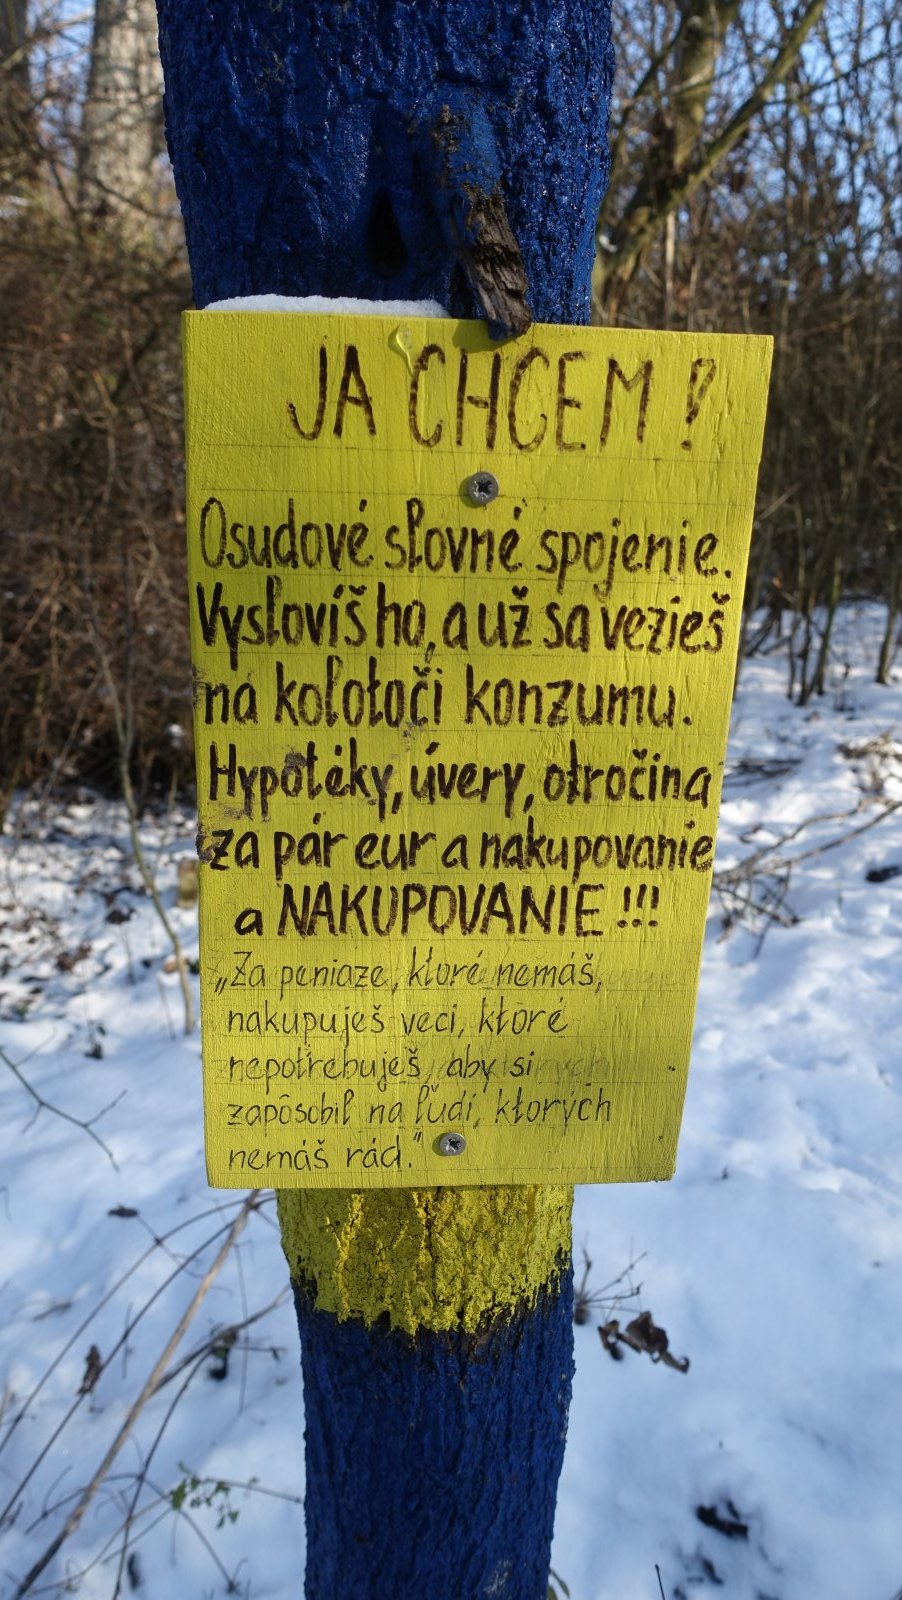 JA CHCEM !
Osudové slovné spojenie.
Vyslovíš ho, a už sa vezieš
na kolotoči konzumu.
Hypotéky, úvery, otročina
za pár eur a nakupovanie
a NAKUPOVANIE !!!
„Za peniaze, ktoré nemáš,
nakupuješ veci, ktoré
nepotrebuješ, aby si
zapôsobil na ľudí, ktorých
nemáš rád."